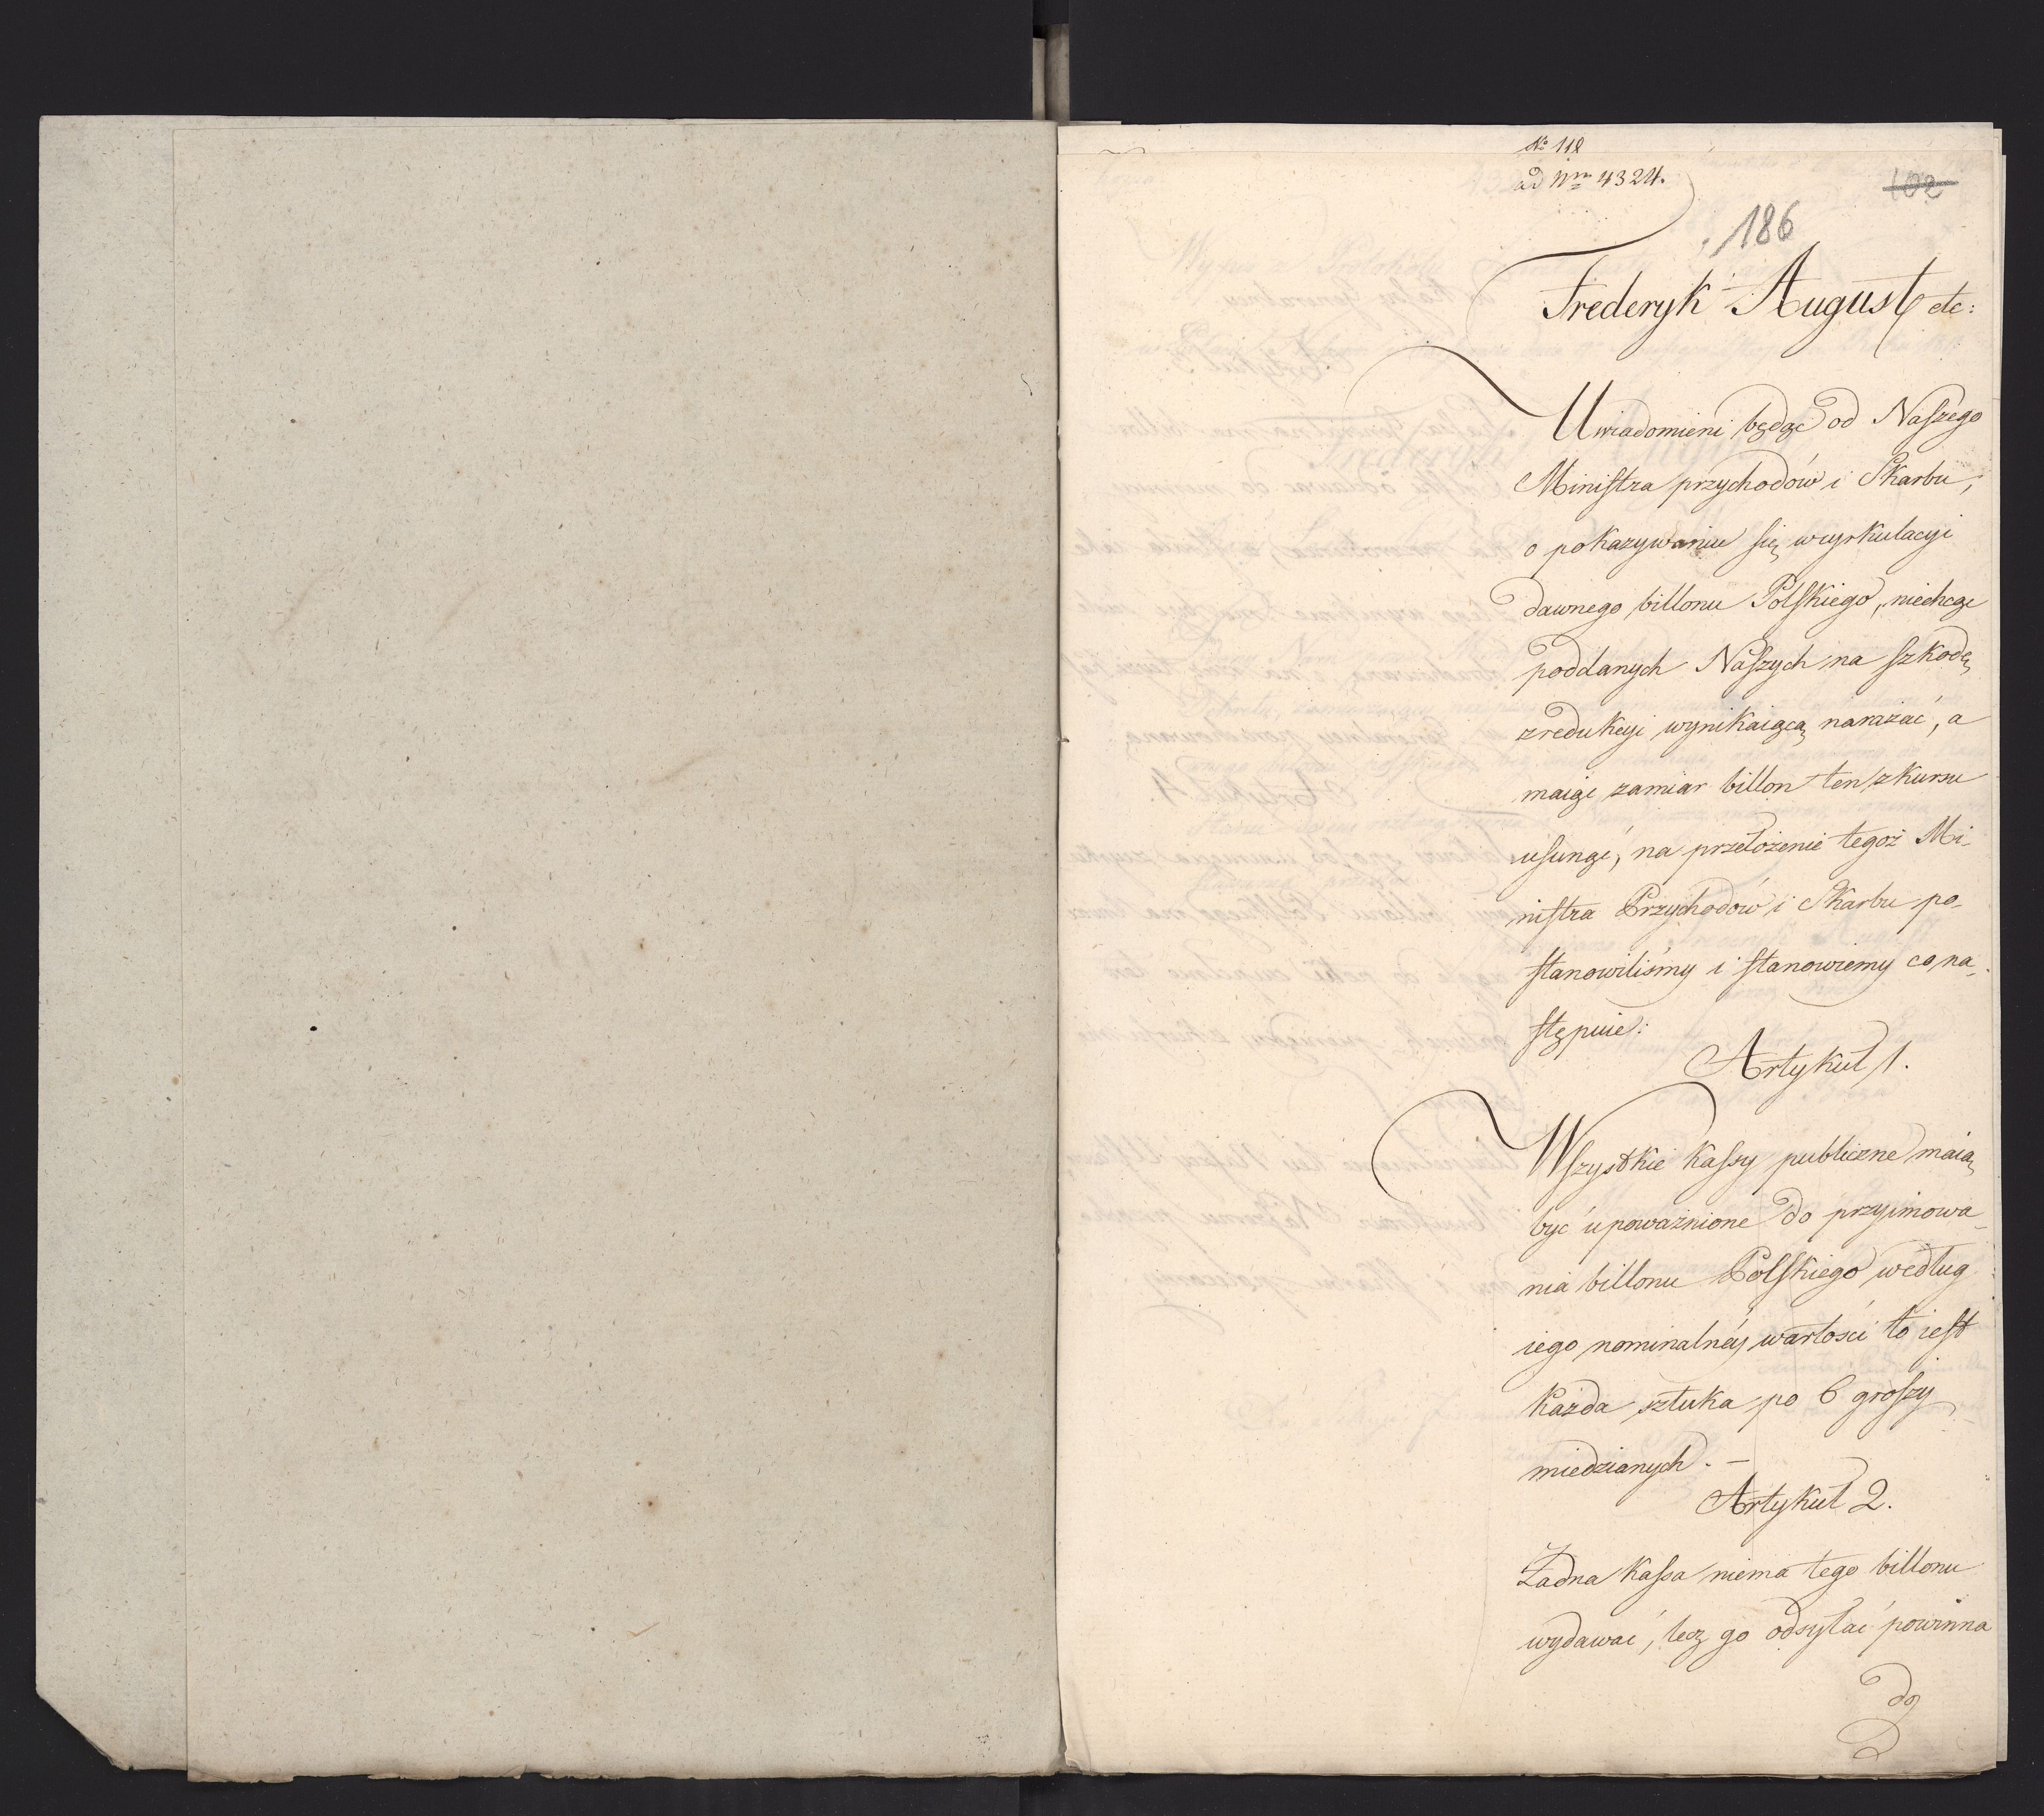 No 118
ad Nrm 4324.
102
186
Frederyk August etc:
Uwiadomieni będąc od Naszego
Ministra przychodów i Skarbu,
o pokazywaniu się w cyrkulacyi
dawnego billonu Polskiego, niechcąc
poddanych Naszych na szkodę
z redukcyi wynikaiącą narażać, a
maiąc zamiar billon ten z kursu
usunąć, na przełożenie tegoż Mi-
nistra Przychodów i Skarbu po-
stanowiliśmy i stanowiemy co na-
stępuie:
Artykuł 1.
Wszystkie kassy publiczne maią
być upoważnione do przyimowa-
nia billonu Polskiego według
iego nominalnéy wartości to iest
każda sztuka po 6 groszy
miedzianych. –
Artykuł 2.
Żadna kassa niema tego billonu
wydawać, lecz go odsyłać powinna
do